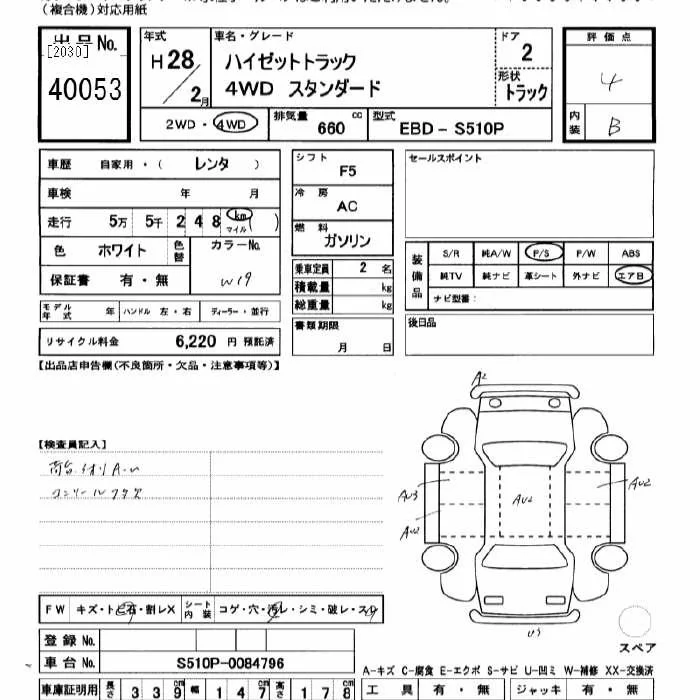 (複合機)対応用紙
出品No.
[2030]
40053
年式
H28/2月
車名・グレード
ハイゼットトラック
4WD スタンダード
ドア
2
形状
トラック
評価点
4
内装
B
2WD・4WD
排気量
660 cc
型式
EBD-S510P
車歴 自家用・( レンタ )
車検 年 月
走行 5万 5千 2 4 8 km マイル ( )
色 ホワイト 色替 カラーNo.
W19
保証書 有・無
モデル年式 年 ハンドル 左・右 ディーラー・並行
リサイクル料金 6,220 円 預託済
シフト
F5
冷房
AC
燃料
ガソリン
乗車定員 2 名
積載量 kg
総重量 kg
書類期限
月 日
セールスポイント
装備品
S/R 純A/W P/S P/W ABS
純TV 純ナビ 革シート 外ナビ エアB
ナビ型番:
後日品
【出品店申告欄(不良箇所・欠品・注意事項等)】
【検査員記入】
荷台 A・U
コンソールキズ
A2
AU3
AU2
AU2
AU2
U3
スペア
FW キズ・ト石・割レX シート内装 コゲ・穴・汚レ・シミ・破レ・スレ
登録No.
車台No. S510P-0084796
車庫証明用 長さ 3 3 9 cm 幅 1 4 7 cm 高さ 1 7 8 cm
A-キズ C-腐食 E-エクボ S-サビ U-凹ミ W-補修 XX-交換済
工具 有・無 ジャッキ 有・無